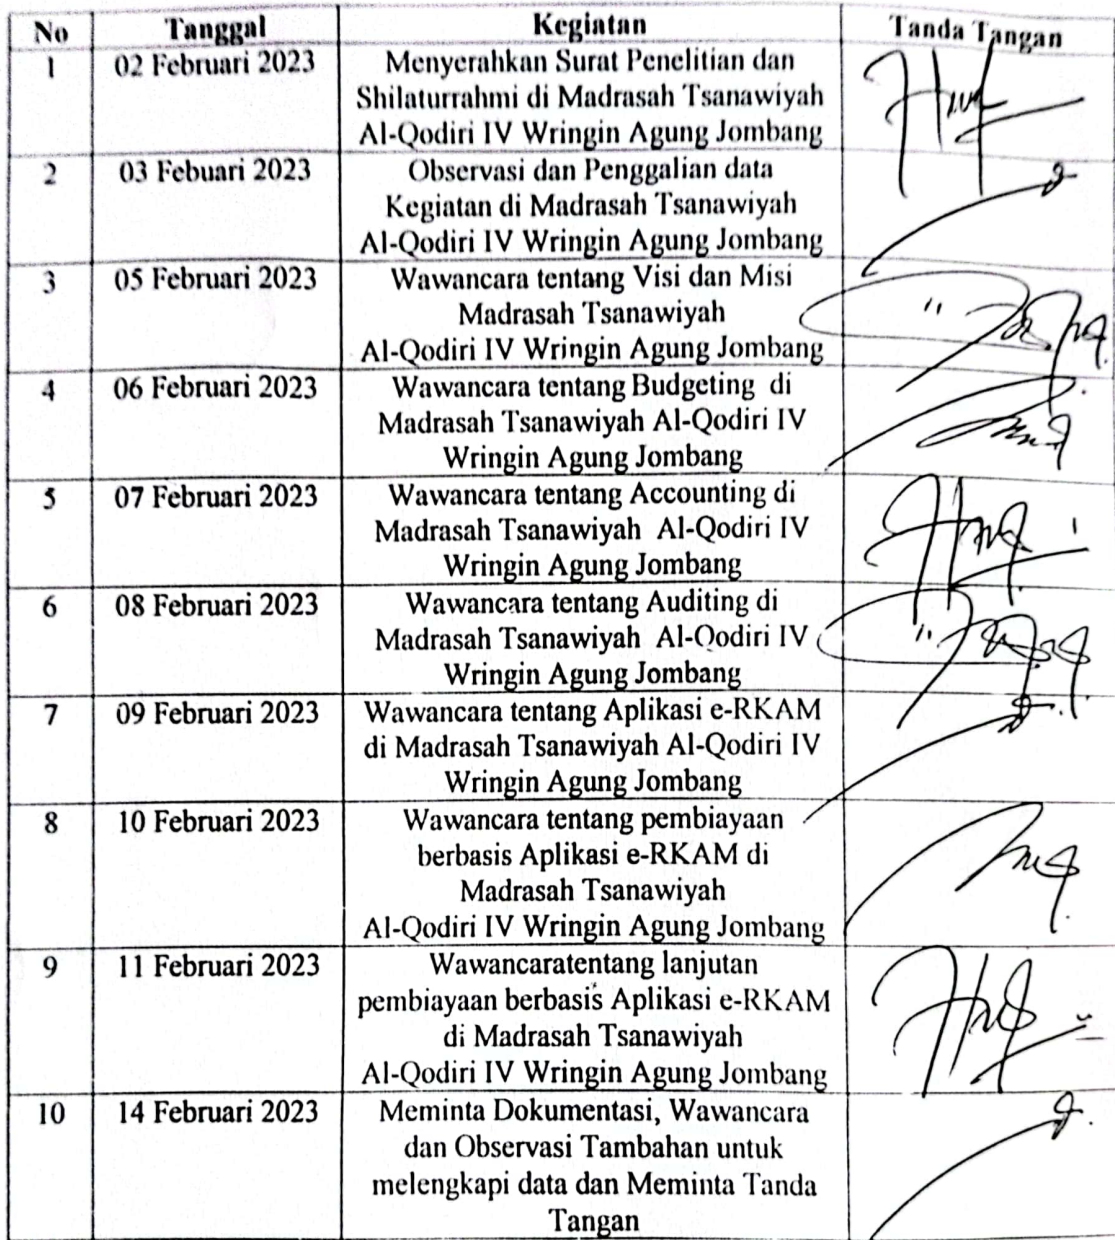 No Tanggal Kegiatan Tanda Tangan
1 02 Februari 2023 Menyerahkan Surat Penelitian dan
Shilaturrahmi di Madrasah Tsanawiyah
Al-Qodiri IV Wringin Agung Jombang
2 03 Febuari 2023 Observasi dan Penggalian data
Kegiatan di Madrasah Tsanawiyah
Al-Qodiri IV Wringin Agung Jombang
3 05 Februari 2023 Wawancara tentang Visi dan Misi
Madrasah Tsanawiyah
Al-Qodiri IV Wringin Agung Jombang
4 06 Februari 2023 Wawancara tentang Budgeting di
Madrasah Tsanawiyah Al-Qodiri IV
Wringin Agung Jombang
5 07 Februari 2023 Wawancara tentang Accounting di
Madrasah Tsanawiyah Al-Qodiri IV
Wringin Agung Jombang
6 08 Februari 2023 Wawancara tentang Auditing di
Madrasah Tsanawiyah Al-Qodiri IV
Wringin Agung Jombang
7 09 Februari 2023 Wawancara tentang Aplikasi e-RKAM
di Madrasah Tsanawiyah Al-Qodiri IV
Wringin Agung Jombang
8 10 Februari 2023 Wawancara tentang pembiayaan
berbasis Aplikasi e-RKAM di
Madrasah Tsanawiyah
Al-Qodiri IV Wringin Agung Jombang
9 11 Februari 2023 Wawancaratentang lanjutan
pembiayaan berbasis Aplikasi e-RKAM
di Madrasah Tsanawiyah
Al-Qodiri IV Wringin Agung Jombang
10 14 Februari 2023 Meminta Dokumentasi, Wawancara
dan Observasi Tambahan untuk
melengkapi data dan Meminta Tanda
Tangan